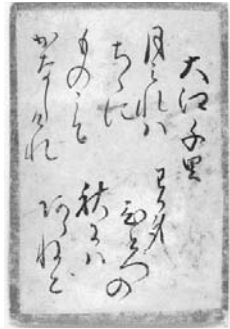 大江千里
月みれは
ちゝに
ものこそ
かなしけれ
わか身
ひとつの
秋には
あらねと